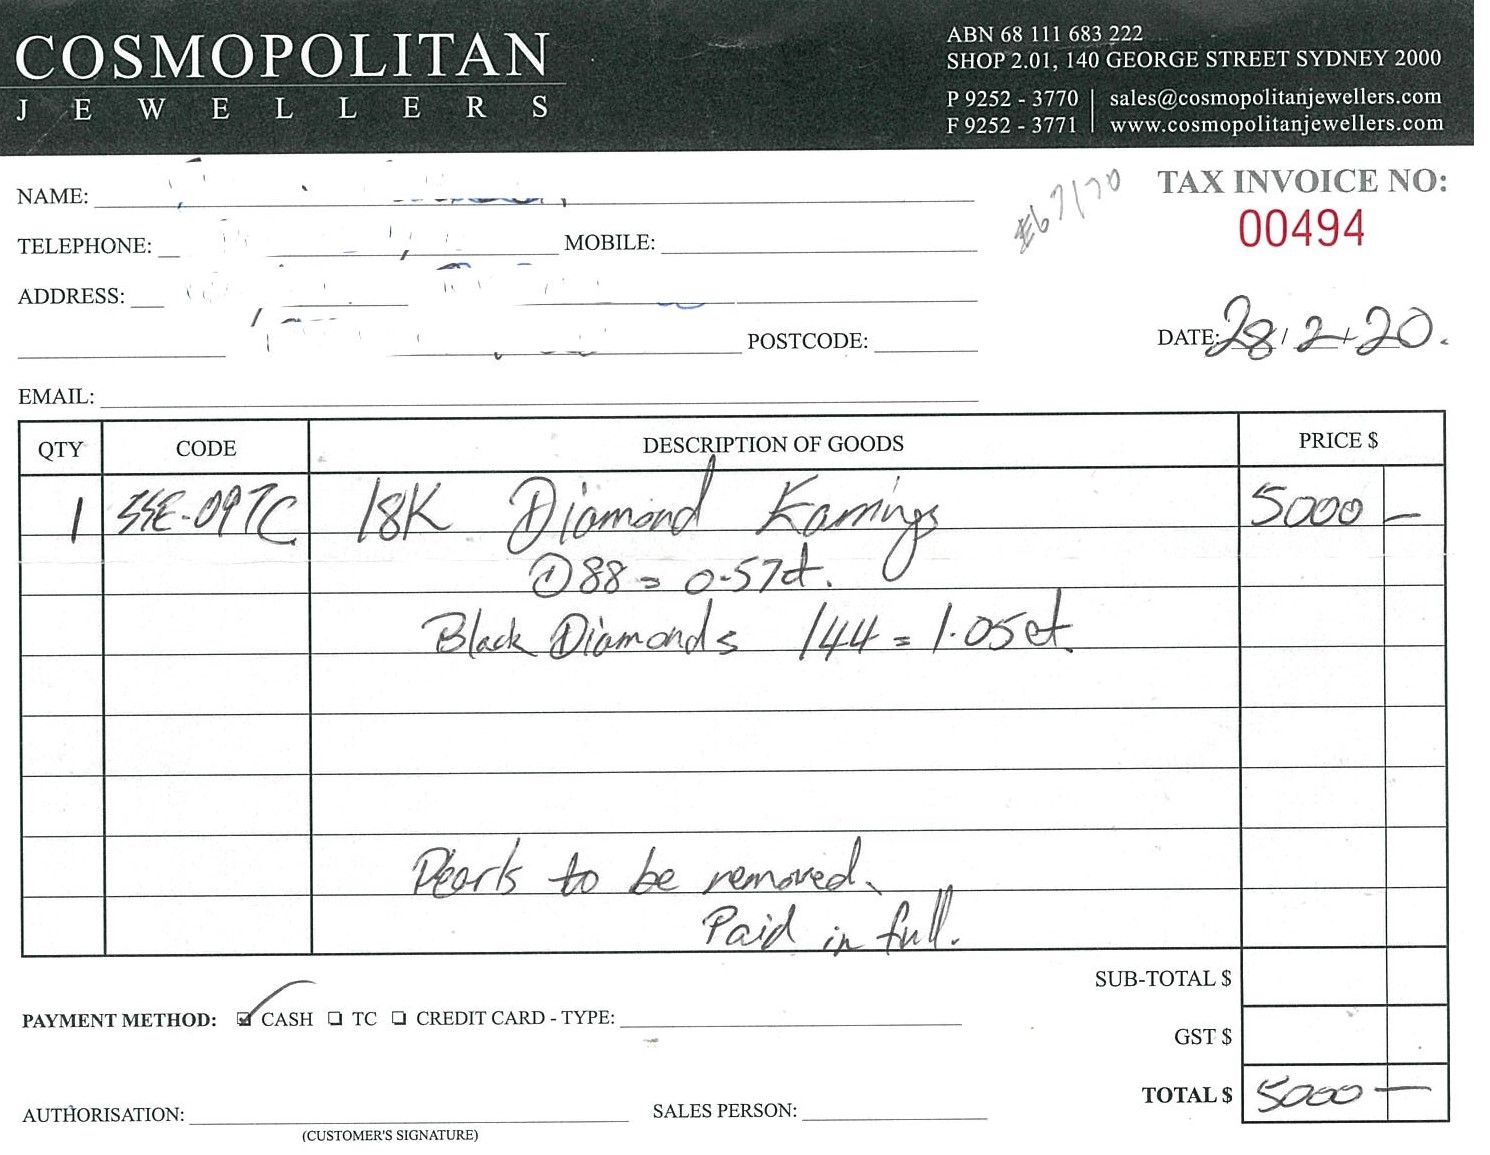 COSMOPOLITAN
JEWELLERS
ABN 68 111 683 222
SHOP 2.01, 140 GEORGE STREET SYDNEY 2000
P 9252 - 3770 | sales@cosmopolitanjewellers.com
F 9252 - 3771 | www.cosmopolitanjewellers.com
NAME:
TAX INVOICE NO:
00494
TELEPHONE: MOBILE:
ADDRESS:
POSTCODE:
DATE: 28/2/20.
EMAIL:
QTY CODE DESCRIPTION OF GOODS PRICE $
1 18K Diamond Earrings 5000 —
88 = 0.57ct.
Black Diamonds 144 = 1.05ct.
Pearls to be removed.
Paid in full.
SUB-TOTAL $
PAYMENT METHOD: CASH TC CREDIT CARD - TYPE:
GST $
TOTAL $ 5000 —
AUTHORISATION: SALES PERSON:
(CUSTOMER'S SIGNATURE)